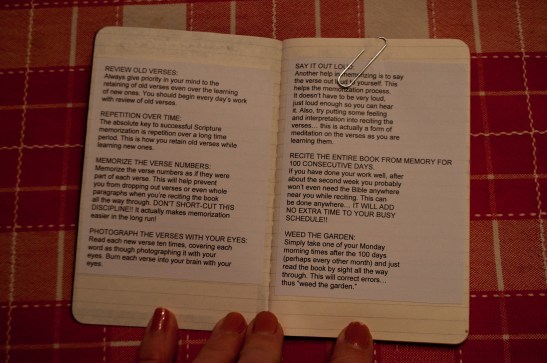 REVIEW OLD VERSES:
Always give priority in your mind to the
retaining of old verses even over the learning
of new ones. You should begin every day's work
with review of old verses.
REPETITION OVER TIME:
The absolute key to successful Scripture
memorization is repetition over a long time
period. This is how you retain old verses while
learning new ones.
MEMORIZE THE VERSE NUMBERS:
Memorize the verse numbers as if they were
part of each verse. This will help prevent
you from dropping out verses or even whole
paragraphs when you're reciting the book
all the way through. DON'T SHORT-CUT THIS
DISCIPLINE!! It actually makes memorization
easier in the long run!
PHOTOGRAPH THE VERSES WITH YOUR EYES:
Read each new verse ten times, covering each
word as though photographing it with your
eyes. Burn each verse into your brain with your
eyes.
SAY IT OUT LOUD:
Another help in memorizing is to say
the verse out loud to yourself. This
helps the memorization process.
It doesn't have to be very loud,
just loud enough so you can hear
it. Also, try putting some feeling
and interpretation into reciting the
verses... this is actually a form of
meditation on the verses as you are
learning them.
RECITE THE ENTIRE BOOK FROM MEMORY FOR
100 CONSECUTIVE DAYS:
If you have done your work well, after
about the second week you probably
won't even need the Bible anywhere
near you while reciting. This can
be done anywhere... IT WILL ADD
NO EXTRA TIME TO YOUR BUSY
SCHEDULE!!
WEED THE GARDEN:
Simply take one of your Monday
morning times after the 100 days
(perhaps every other month) and just
read the book by sight all the way
through. This will correct errors...
thus "weed the garden."